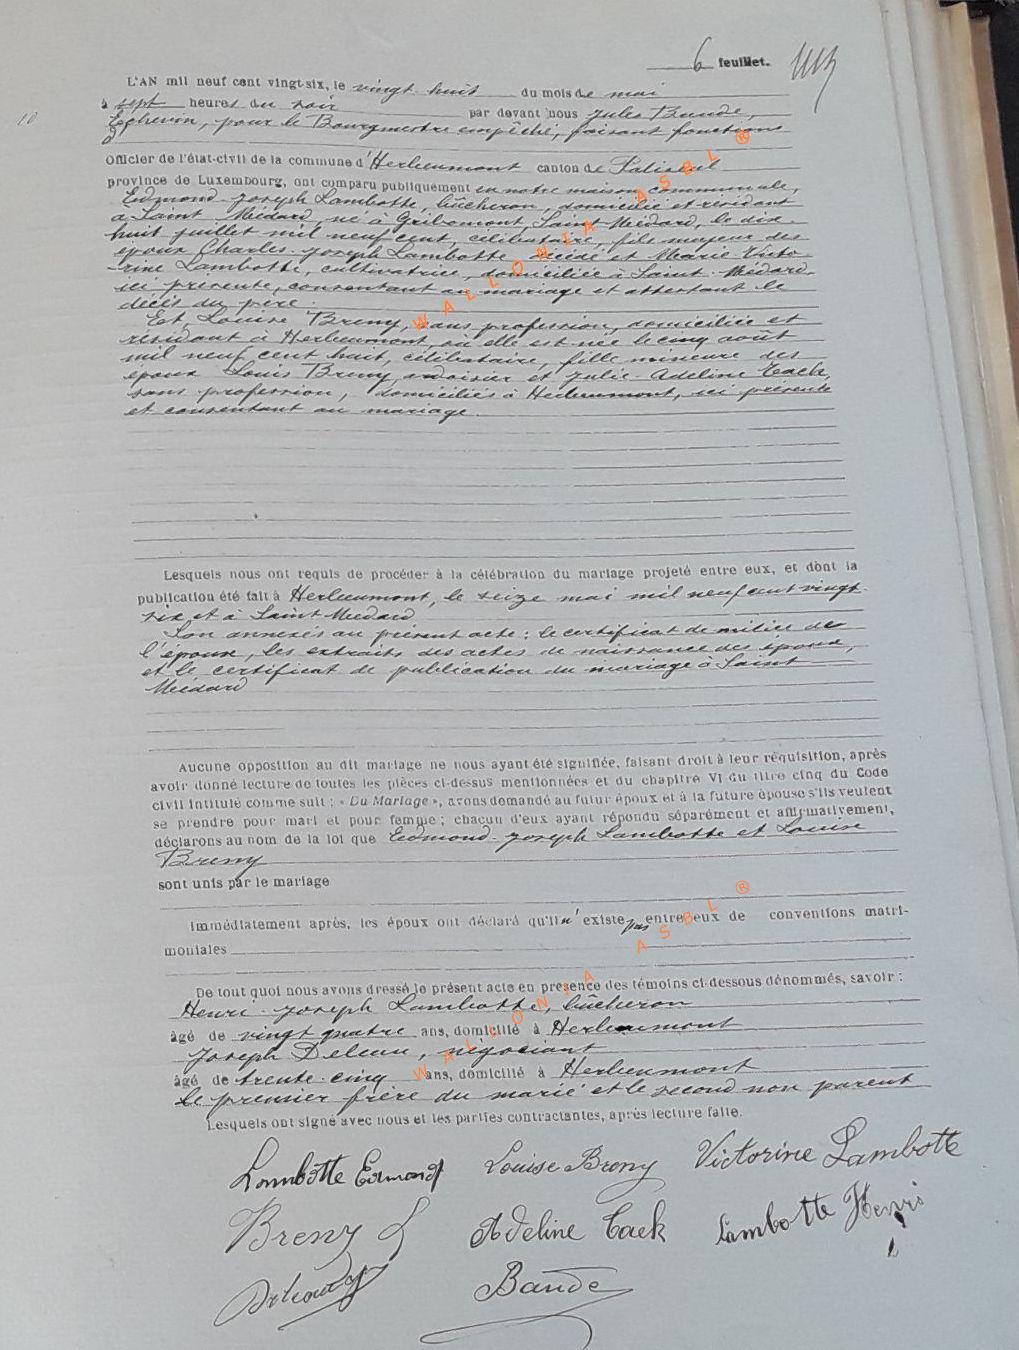 6 feuillet.
10
L'AN mil neuf cent vingt-six, le vingt huit du mois de mai
à sept heures du soir par devant nous Jules Bande,
Echevin, pour le Bourgmestre empêché, faisant fonctions
Officier de l'état-civil de la commune d'Herbeumont canton de Paliseul
province de Luxembourg, ont comparu publiquement en notre maison communale,
Edmond-Joseph Lambotte, bûcheron, domicilié et résidant
à Saint Médard, né à Gribomont, Saint-Médard, le dix-
huit juillet mil neuf cent, célibataire, fils majeur des
époux Charles-Joseph Lambotte décédé et Marie Victo-
rine Lambotte, cultivatrice, domiciliée à Saint-Médard
ici présente, consentant au mariage et attestant le
décès du père.
Et, Louise Breny, sans profession, domiciliée et
résidant à Herbeumont, où elle est née le cinq août
mil neuf cent huit, célibataire, fille mineure des
époux Louis Breny, ardoisier et Julie-Adeline Caek,
sans profession, domiciliés à Herbeumont, ici présents
et consentant au mariage.
Lesquels nous ont requis de procéder à la célébration du mariage projeté entre eux, et dont la
publication été fait à Herbeumont, le seize mai mil neuf cent vingt-
six et à Saint Médard
Son annexés au présent acte: le certificat de milice de
l'époux, les extraits des actes de naissance des époux,
et le certificat de publication du mariage à Saint
Médard
Aucune opposition au dit mariage ne nous ayant été signifiée, faisant droit à leur réquisition, après
avoir donné lecture de toutes les pièces ci-dessus mentionnées et du chapitre VI du titre cinq du Code
civil intitulé comme suit : « Du Mariage », avons demandé au futur époux et à la future épouse s'ils veulent
se prendre pour mari et pour femme ; chacun d'eux ayant répondu séparément et affirmativement,
déclarons au nom de la loi que Edmond-Joseph Lambotte et Louise
Breny
sont unis par le mariage
Immédiatement après, les époux ont déclaré qu'il n'existe pas entre eux de conventions matri-
moniales
De tout quoi nous avons dressé le présent acte en présence des témoins ci-dessous dénommés, savoir :
Henri-Joseph Lambotte, bûcheron
âgé de vingt quatre ans, domicilié à Herbeumont
Joseph , négociant
âgé de trente-cinq ans, domicilié à Herbeumont
le premier frère du marié et le second non parent
Lesquels ont signé avec nous et les parties contractantes, après lecture faite.
Lambotte Edmond Louise Breny Victorine Lambotte
Breny L Adeline Caek Lambotte Henri
Bande
WALLONIA ASBL ®
WALLONIA ASBL ®